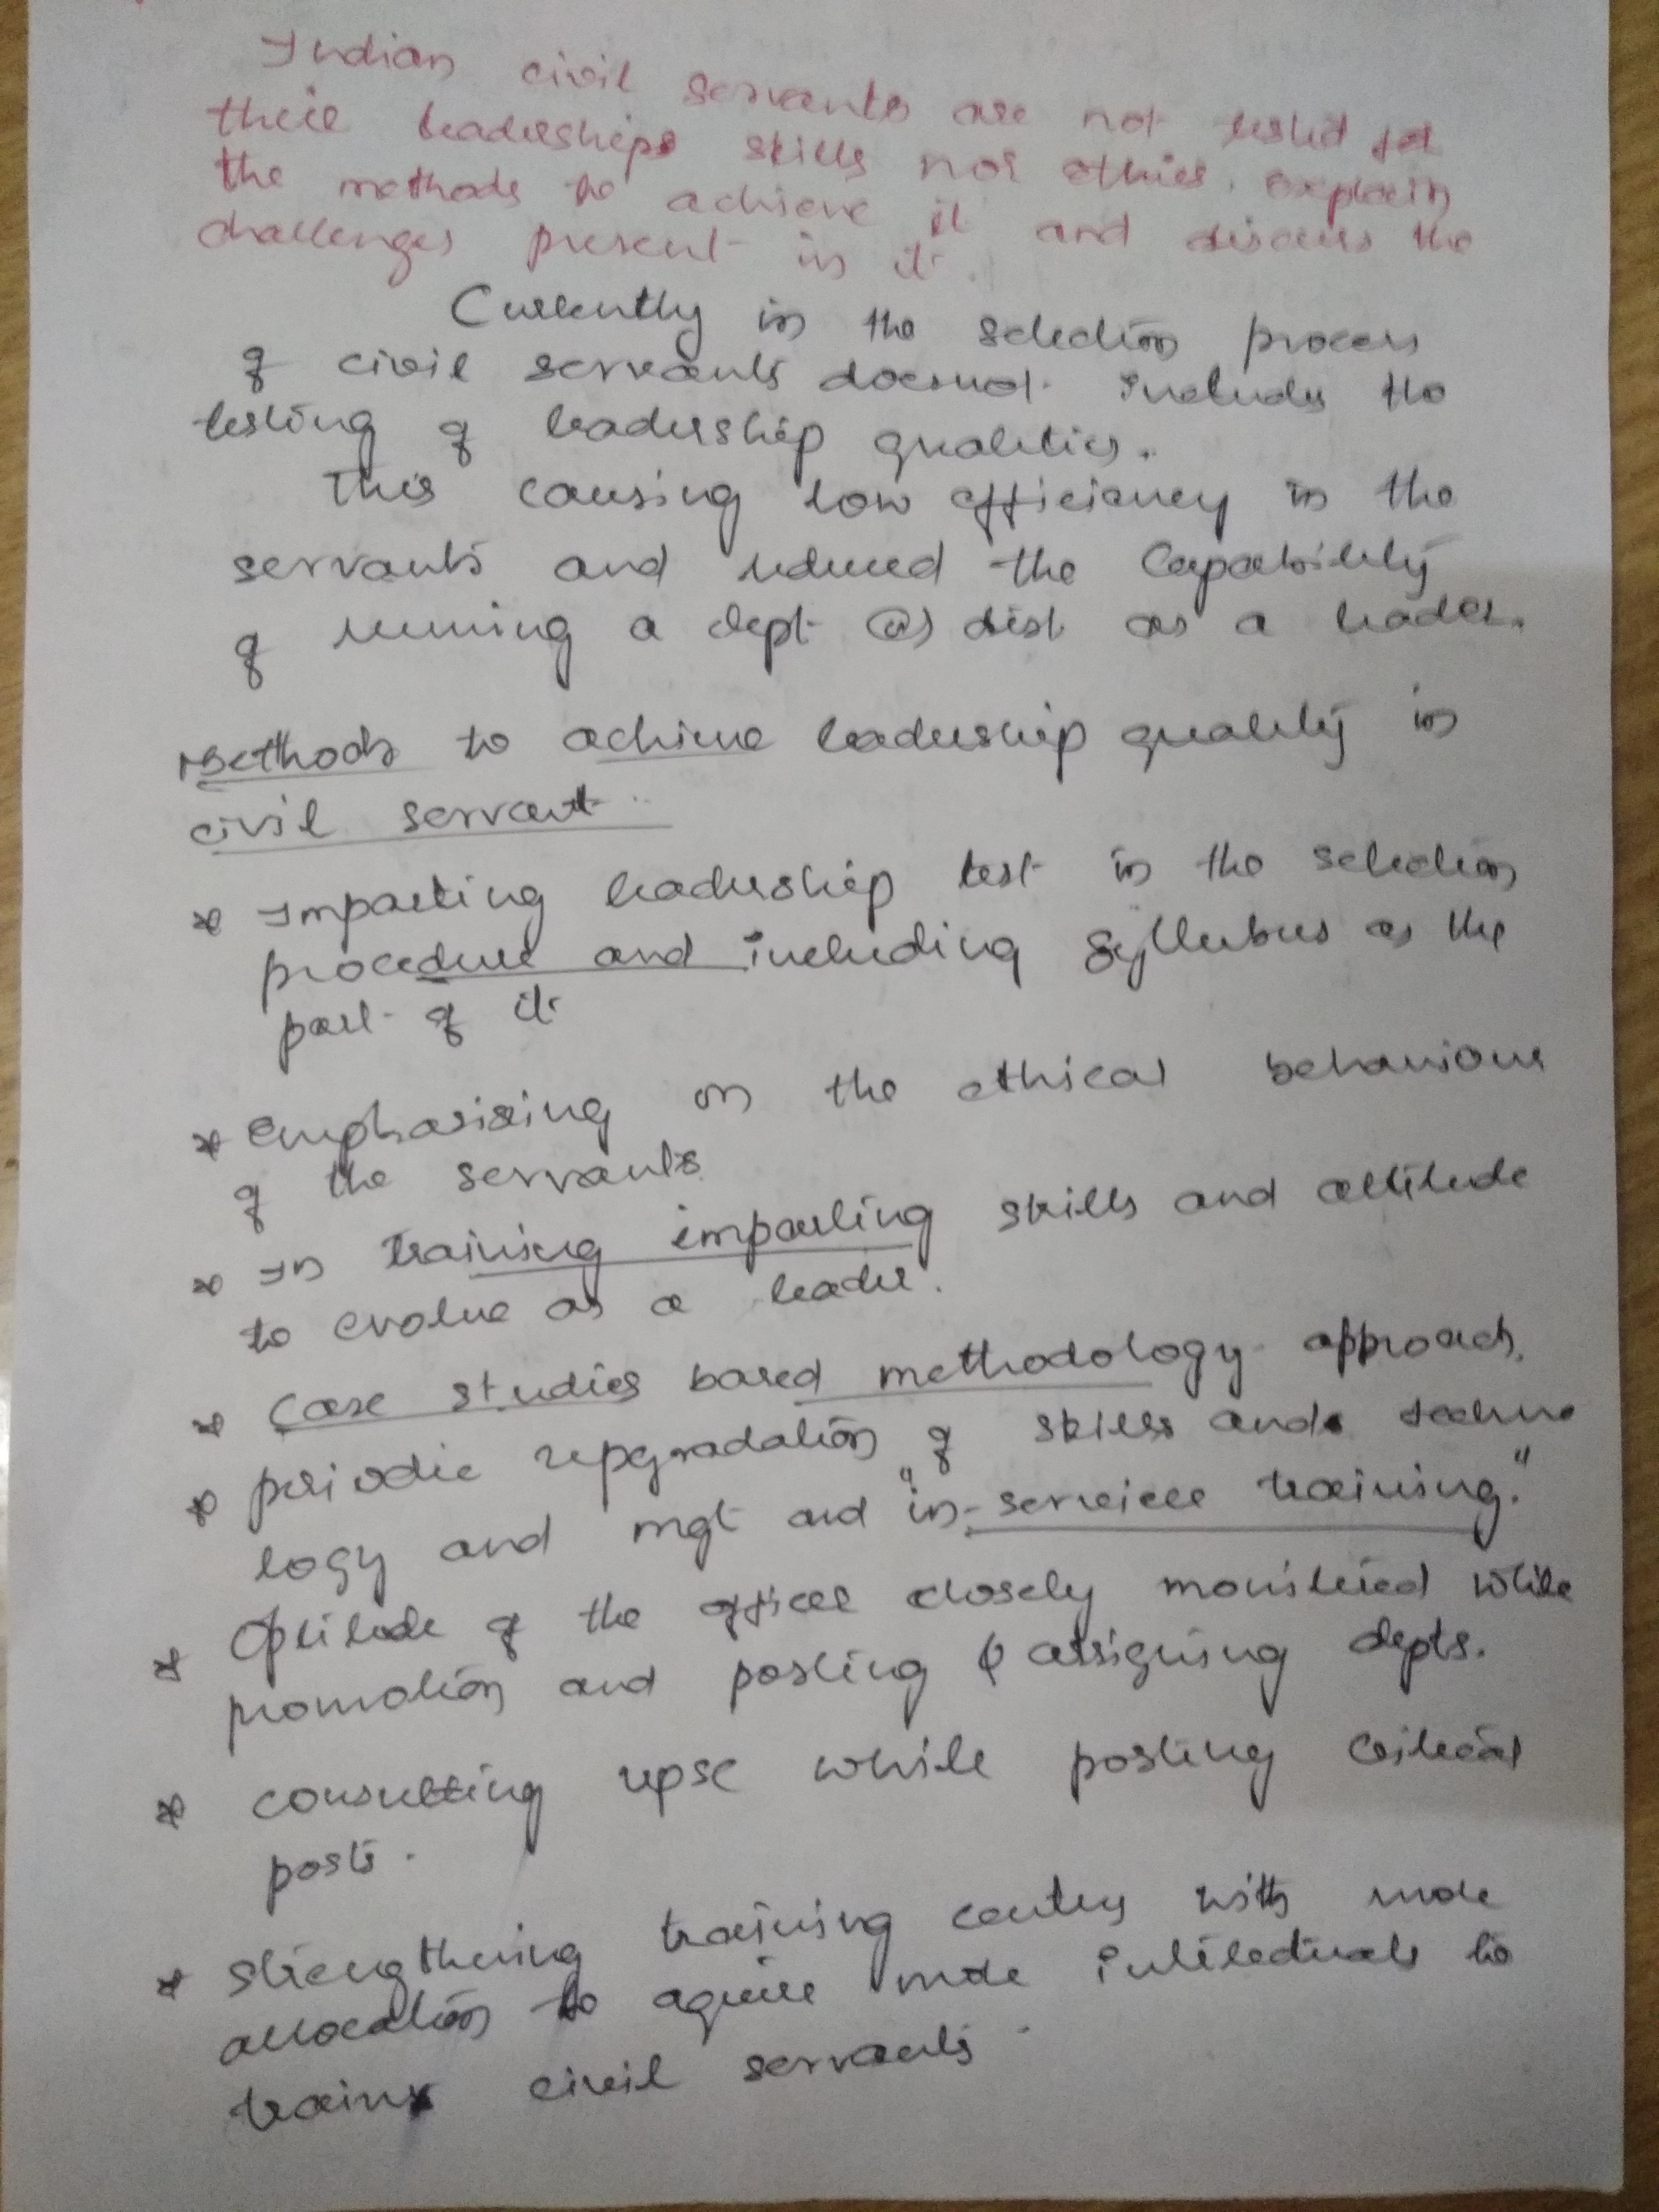 Indian civil servants are not tested for
their leaderships skills nor ethics. Explain
the methods to achieve it and discuss the
challenges present in it.
Currently in the selection process
of civil servants doesnot includes the
testing of leadership qualities.
This causing low efficiency in the
servants and reduced the capability
of running a dept (or) dist as a leader.
Methods to achieve leadership quality in
civil servant
* Imparting leadership test in the selection
procedure and including syllubus as the
part of it
* Emphasising on the ethical behaviour
of the servants
* In training imparting skills and attitude
to evolve as a leader.
* Case studies based methodology approach.
* periodic upgradation of skills and techno
logy and mgt and "in-service training."
* Optitude of the officer closely monitered while
promotion and posting & assigning depts.
* consulting upsc while posting critical
posts.
* Strengthening training centres with more
allocation to aquire more intilectuals to
train civil servants.